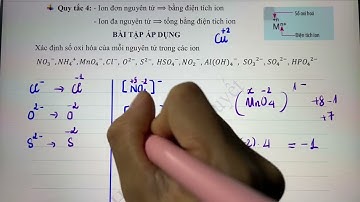 Quy tắc 4: - Ion đơn nguyên tử ⟹ bằng điện tích ion
- Ion đa nguyên tử ⟹ tổng bằng điện tích ion
Số oxi hoá
Mⁿ⁺
Điện tích ion
Cu⁺²
BÀI TẬP ÁP DỤNG
Xác định số oxi hóa của mỗi nguyên tử trong các ion
NO₃⁻, NH₄⁺, MnO₄⁻, Cl⁻, O²⁻, S²⁻, HSO₄⁻, NO₂⁻, Al(OH)₄⁻, SO₃²⁻, SO₄²⁻, HPO₄²⁻
Cl⁻ → Cl⁻
O²⁻ → O⁻²
S²⁻ → S⁻²
+3 -2
[NO₂]⁻
x -2
(MnO₄)¹⁻
+8-1
+7
2).4 = -1